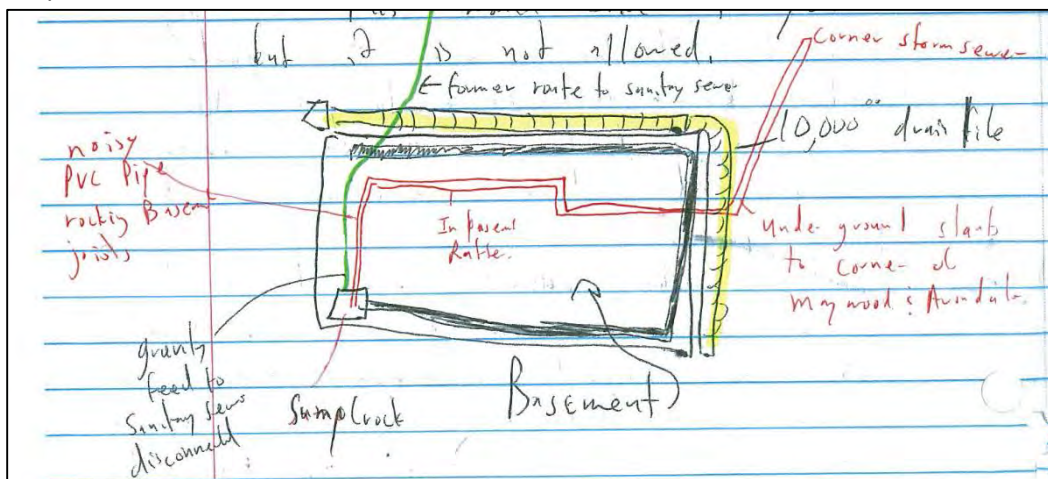 but it is not allowed.
corner storm sewer
← former route to sanitary sewer
10,000 drain tile
noisy
PVC Pipe
rocking Basem
joists
In Basem
Rafter
Underground stub
to corner of
Maywood & Avondale
gravity
feed to
sanitary sewer
disconnected
Sump Crock
Basement